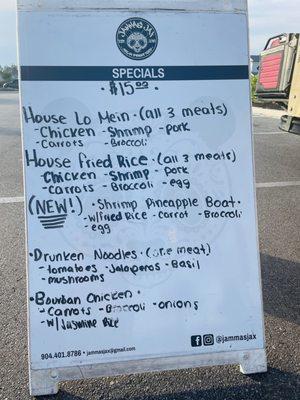 JAMMAS JAX
SPECIALS
- $15.00 -
House Lo Mein · (all 3 meats)
- Chicken - Shrimp - pork
- Carrots - Broccoli
House Fried Rice · (all 3 meats)
- Chicken - Shrimp - Pork
- Carrots - Broccoli - egg
(NEW!) · Shrimp Pineapple Boat ·
- w/Fried Rice - Carrot - Broccoli
- egg
· Drunken Noodles · (one meat)
- tomatoes - Jalapenos - Basil
- mushrooms
· Bourban Chicken ·
- Carrots - Broccoli - onions
- w/ Jasmine Rice
904.401.8786 • jammasjax@gmail.com
@jammasjax